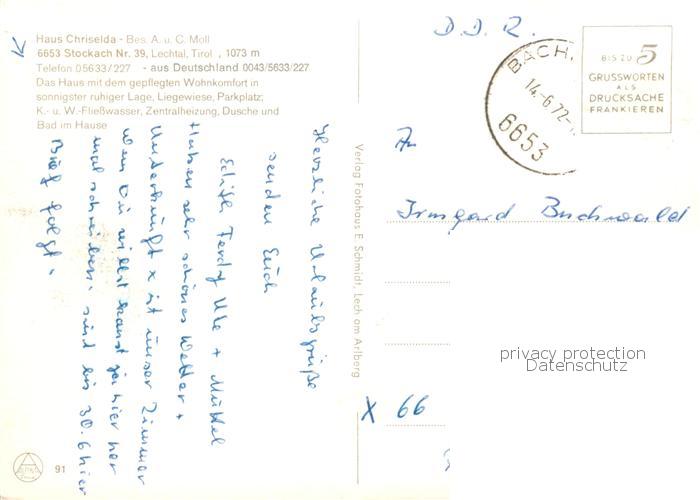 Haus Chriselda - Bes. A. u. C. Moll
6653 Stockach Nr. 39, Lechtal, Tirol , 1073 m
Telefon 05633/227 - aus Deutschland 0043/5633/227
Das Haus mit dem gepflegten Wohnkomfort in
sonnigster ruhiger Lage, Liegewiese, Parkplatz;
K.- u. W.-Fließwasser, Zentralheizung, Dusche und
Bad im Hause
Herzliche Urlaubsgrüße
senden Euch
Edith Ferdy Ute +
Haben sehr schönes Wetter +
Unterkunft x ist unser Zimmer
wenn Du willst kannst ja hier her
mal schreiben. sind bis 30.6 hier
Brief folgt.
Verlag Fotohaus E. Schmidt, Lech am Arlberg
D.D.R.
BACH,
14.-6.72-
6653
BIS ZU 5
GRUSSWORTEN
ALS
DRUCKSACHE
FRANKIEREN
An
Irmgard Buchwald
X 66
privacy protection
Datenschutz
91